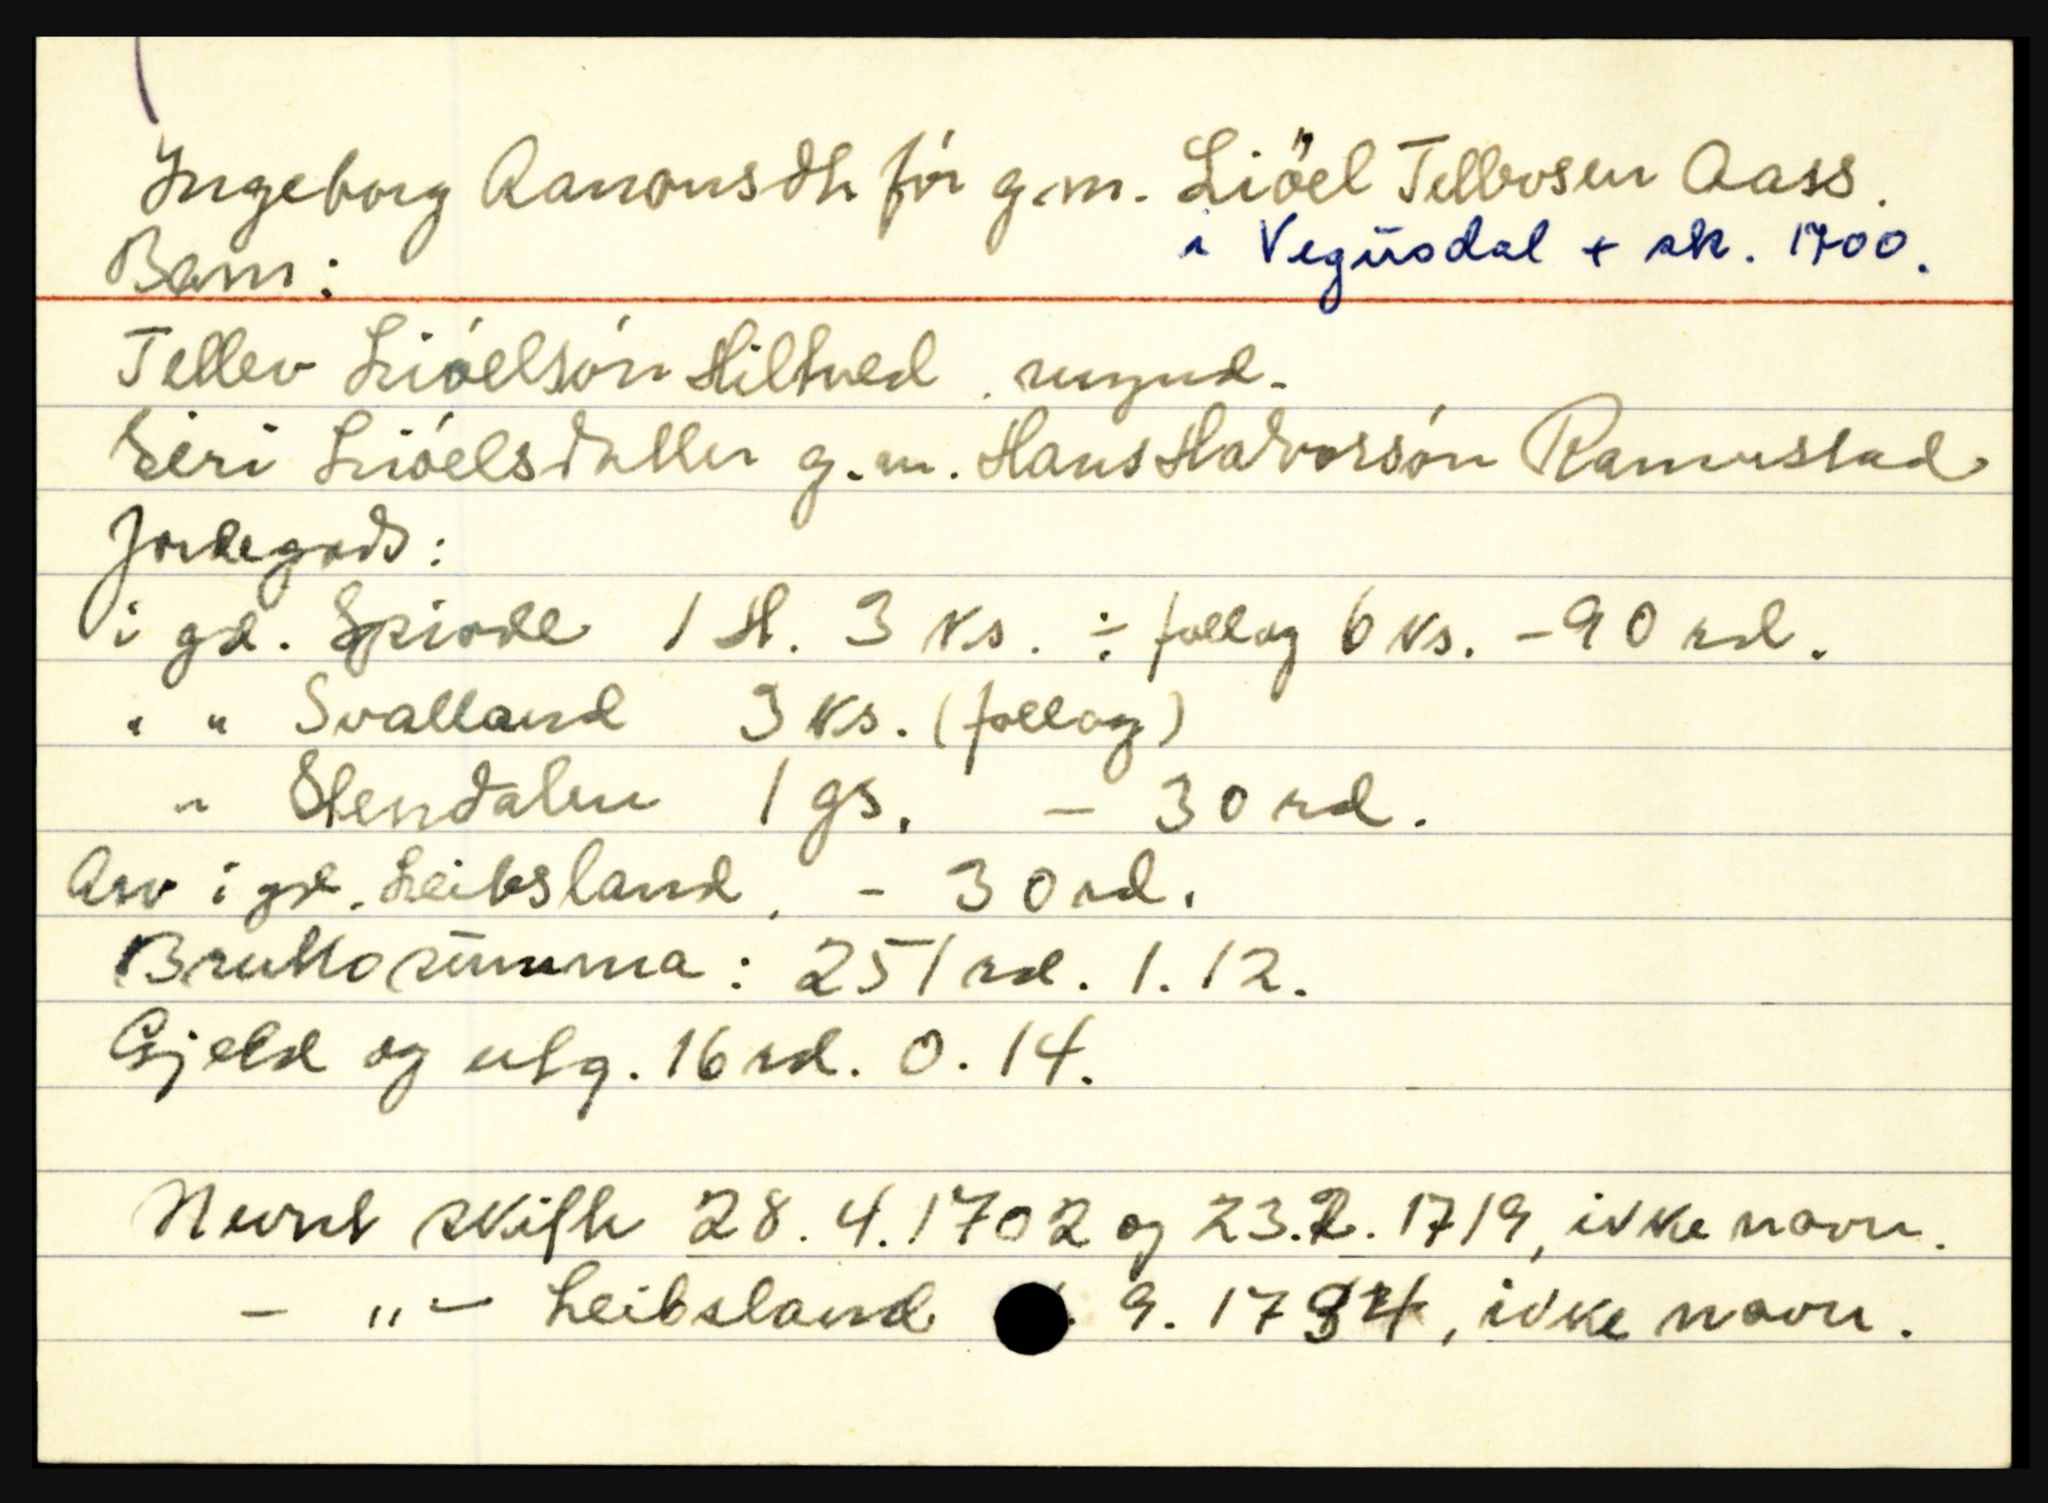 Ingeborg Aanonsdtr før g.m. Liöel Tellevsen Aass.
i Vegüsdal + sk. 1700.
Barn:
Tellev Lióelsón Hiltved. mynd.
Siri Lióelsdatter g.m. Hans Halvorsón Ramvstad
Jordegods:
i gd. Spirdle 1 H. 3 ks. ÷ fellag 6 ks. - 90 rd.
" " Svalland 3 ks. (fellag)
" Stendalen 1 gs. - 30 rd.
Arv i gd. Leibsland. - 30 rd.
Brutto summa: 251 rd. 1. 12.
Gjeld og utg. 16 rd. 0. 14.
Nevnt skifte 28. 4. 1702 og 23.2. 1719, ikke navn.
- " - Leibsland 9. 1734, ikke navn.